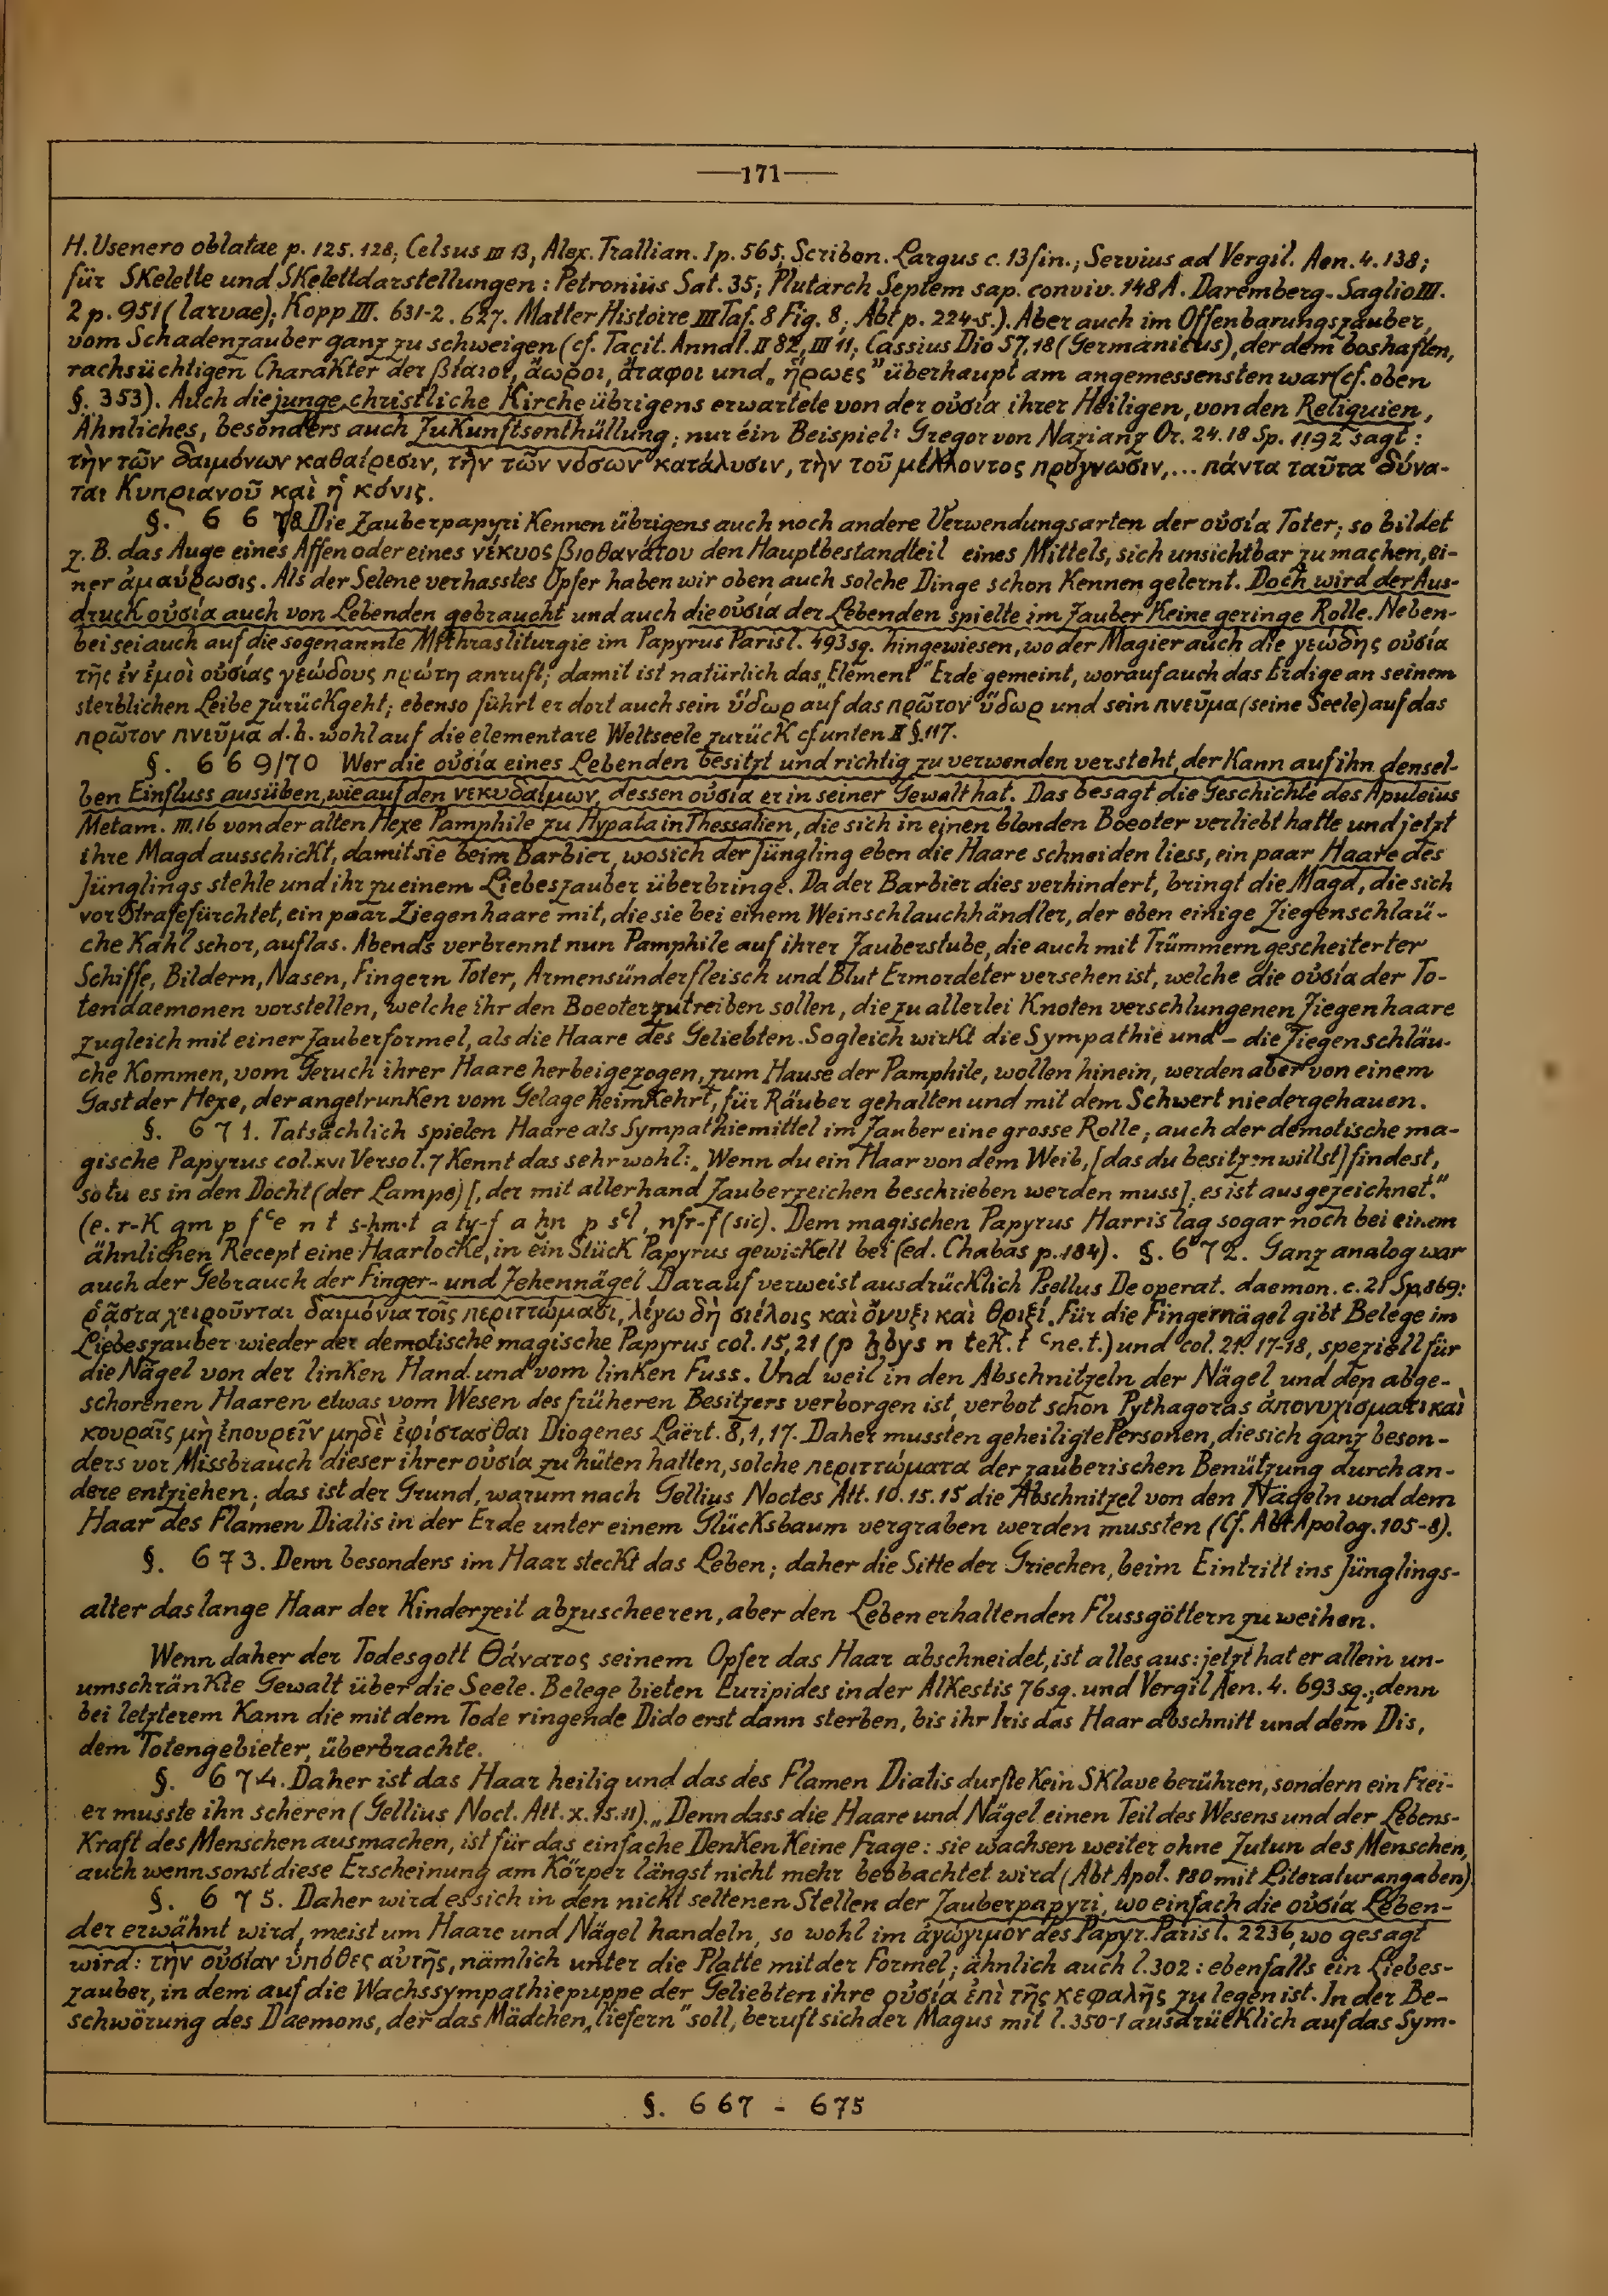 —171—
H. Usenero oblatae p. 125. 128; Celsus III 13, Alex. Trallian. I p. 565; Scribon. Largus c. 13 fin.; Servius ad Vergil. Aen. 4. 138;
für Skelette und Skelettdarstellungen: Petronius Sat. 35; Plutarch Septem sap. conviv. 148 A. Daremberg-Saglio III.
2 p. 951 (larvae); Kopp III. 631-2. 627. Matter Histoire III Taf. 8 Fig. 8; Abt p. 224-5.). Aber auch im Offenbarungszauber,
vom Schadenzauber ganz zu schweigen (cf. Tacit. Annal. II 82, III 11; Cassius Dio 57, 18 (Germanicus), der dem boshaften,
rachsüchtigen Charakter der βίαιοι, ἄωροι, ἄταφοι und „ἥρωες" überhaupt am angemessensten war (cf. oben
§. 353). Auch die junge christliche Kirche übrigens erwartete von der οὐσία ihrer Heiligen, von den Reliquien,
Ähnliches, besonders auch Zukunftsenthüllung; nur éin Beispiel: Gregor von Nazianz Or. 24. 18 Sp. 1192 sagt:
τὴν τῶν δαιμόνων καθαίρεσιν, τὴν τῶν νόσων κατάλυσιν, τὴν τοῦ μέλλοντος πρόγνωσιν,... πάντα ταῦτα δύνα-
ται Κυπριανοῦ καὶ ἡ κόνις.
§. 6 6 7/8 Die Zauberpapyri kennen übrigens auch noch andere Verwendungsarten der οὐσία Toter; so bildet
z. B. das Auge eines Affen oder eines νέκυος βιοθανάτου den Hauptbestandteil eines Mittels, sich unsichtbar zu machen, ei-
ner ἀμαύρωσις. Als der Selene verhasstes Opfer haben wir oben auch solche Dinge schon kennen gelernt. Doch wird der Aus-
druck οὐσία auch von Lebenden gebraucht und auch die οὐσία der Lebenden spielte im Zauber keine geringe Rolle. Neben-
bei sei auch auf die sogenannte Mithrasliturgie im Papyrus Paris l. 493 sq. hingewiesen, wo der Magier auch die γεώδης οὐσία
τῆς ἐν ἐμοὶ οὐσίας γεώδους πρώτη anruft; damit ist natürlich das „Element" Erde gemeint, worauf auch das Erdige an seinem
sterblichen Leibe zurückgeht; ebenso führt er dort auch sein ὕδωρ auf das πρῶτον ὕδωρ und sein πνεῦμα (seine Seele) auf das
πρῶτον πνεῦμα d. h. wohl auf die elementare Weltseele zurück cf. unten II §. 117.
§. 6 6 9/70 Wer die οὐσία eines Lebenden besitzt und richtig zu verwenden versteht, der kann auf ihn densel-
ben Einfluss ausüben, wie auf den νεκυδαίμων, dessen οὐσία er in seiner Gewalt hat. Das besagt die Geschichte des Apuleius
Metam. III. 16 von der alten Hexe Pamphile zu Hypata in Thessalien, die sich in einen blonden Boeoter verliebt hatte und jetzt
ihre Magd ausschickt, damit sie beim Barbier, wo sich der Jüngling eben die Haare schneiden liess, ein paar Haare des
Jünglings stehle und ihr zu einem Liebeszauber überbringe. Da der Barbier dies verhindert, bringt die Magd, die sich
vor Strafe fürchtet, ein paar Ziegenhaare mit, die sie bei einem Weinschlauchhändler, der eben einige Ziegenschläu-
che kahl schor, auflas. Abends verbrennt nun Pamphile auf ihrer Zauberstube, die auch mit Trümmern gescheiterter
Schiffe, Bildern, Nasen, Fingern Toter, Armensünderfleisch und Blut Ermordeter versehen ist, welche die οὐσία der To-
tendaemonen vorstellen, welche ihr den Boeoter zutreiben sollen, die zu allerlei Knoten verschlungenen Ziegenhaare
zugleich mit einer Zauberformel, als die Haare des Geliebten. Sogleich wirkt die Sympathie und - die Ziegenschläu-
che kommen, vom Geruch ihrer Haare herbeigezogen, zum Hause der Pamphile, wollen hinein, werden aber von einem
Gast der Hexe, der angetrunken vom Gelage heimkehrt, für Räuber gehalten und mit dem Schwert niedergehauen.
§. 6 7 1. Tatsächlich spielen Haare als Sympathiemittel im Zauber eine grosse Rolle; auch der demotische ma-
gische Papyrus col. XVI Verso l. 7 kennt das sehr wohl: „Wenn du ein Haar von dem Weib, [das du besitzen willst] findest,
so tu es in den Docht (der Lampe) [, der mit allerhand Zauberzeichen beschrieben werden muss]; es ist ausgezeichnet."
(e. r-k gm p fᶜe n t s-hm·t a ty-f a ḫn p sᶜl, nfr-f (sic). Dem magischen Papyrus Harris lag sogar noch bei einem
ähnlichen Recept eine Haarlocke, in ein Stück Papyrus gewickelt bei (ed. Chabas p. 184). §. 6 7 2. Ganz analog war
auch der Gebrauch der Finger- und Zehennägel. Darauf verweist ausdrücklich Psellus De operat. daemon. c. 21 Sp. 869:
ῥᾷστα χειροῦνται δαιμόνια τοῖς περιττώμασι, λέγω δὴ σιέλοις καὶ ὄνυξι καὶ θριξί. Für die Fingernägel gibt Belege im
Liebeszauber wieder der demotische magische Papyrus col. 15, 21 (p ḫbys n tek. t ᶜne. t.) und col. 21. 17-18, speziell für
die Nägel von der linken Hand und vom linken Fuss. Und weil in den Abschnitzeln der Nägel und den abge-
schorenen Haaren etwas vom Wesen des früheren Besitzers verborgen ist, verbot schon Pythagoras ἀπονυχίσμασι καὶ
κουραῖς μὴ ἐπουρεῖν μηδὲ ἐφίστασθαι Diogenes Laërt. 8, 1, 17. Daher mussten geheiligte Personen, die sich ganz beson-
ders vor Missbrauch dieser ihrer οὐσία zu hüten hatten, solche περιττώματα der zauberischen Benützung durch an-
dere entziehen; das ist der Grund, warum nach Gellius Noctes Att. 10. 15. 15 die Abschnitzel von den Nägeln und dem
Haar des Flamen Dialis in der Erde unter einem Glücksbaum vergraben werden mussten (Cf. Abt Apolog. 105-8).
§. 6 7 3. Denn besonders im Haar steckt das Leben; daher die Sitte der Griechen, beim Eintritt ins Jünglings-
alter das lange Haar der Kinderzeit abzuscheeren, aber den Leben erhaltenden Flussgöttern zu weihen.
Wenn daher der Todesgott Θάνατος seinem Opfer das Haar abschneidet, ist alles aus: jetzt hat er allein un-
umschränkte Gewalt über die Seele. Belege bieten Euripides in der Alkestis 76 sq. und Vergil Aen. 4. 693 sq.; denn
bei letzterem kann die mit dem Tode ringende Dido erst dann sterben, bis ihr Iris das Haar abschnitt und dem Dis,
dem Totengebieter, überbrachte.
§. 6 7 4. Daher ist das Haar heilig und das des Flamen Dialis durfte kein Sklave berühren, sondern ein Frei-
er musste ihn scheren (Gellius Noct. Att. X. 15. 11). „Denn dass die Haare und Nägel einen Teil des Wesens und der Lebens-
kraft des Menschen ausmachen, ist für das einfache Denken keine Frage: sie wachsen weiter ohne Zutun des Menschen,
auch wenn sonst diese Erscheinung am Körper längst nicht mehr beobachtet wird (Abt Apol. 180 mit Literaturangaben)
§. 6 7 5. Daher wird es sich in den nicht seltenen Stellen der Zauberpapyri, wo einfach die οὐσία Leben-
der erwähnt wird, meist um Haare und Nägel handeln, so wohl im ἀγώγιμον des Papyr. Paris l. 2236, wo gesagt
wird: τὴν οὐσίαν ὑπόθες αὐτῆς, nämlich unter die Platte mit der Formel; ähnlich auch l. 302: ebenfalls ein Liebes-
zauber, in dem auf die Wachssympathiepuppe der Geliebten ihre οὐσία ἐπὶ τῆς κεφαλῆς zu legen ist. In der Be-
schwörung des Daemons, der das Mädchen „liefern" soll, beruft sich der Magus mit l. 350-1 ausdrücklich auf das Sym-
§. 667 - 675